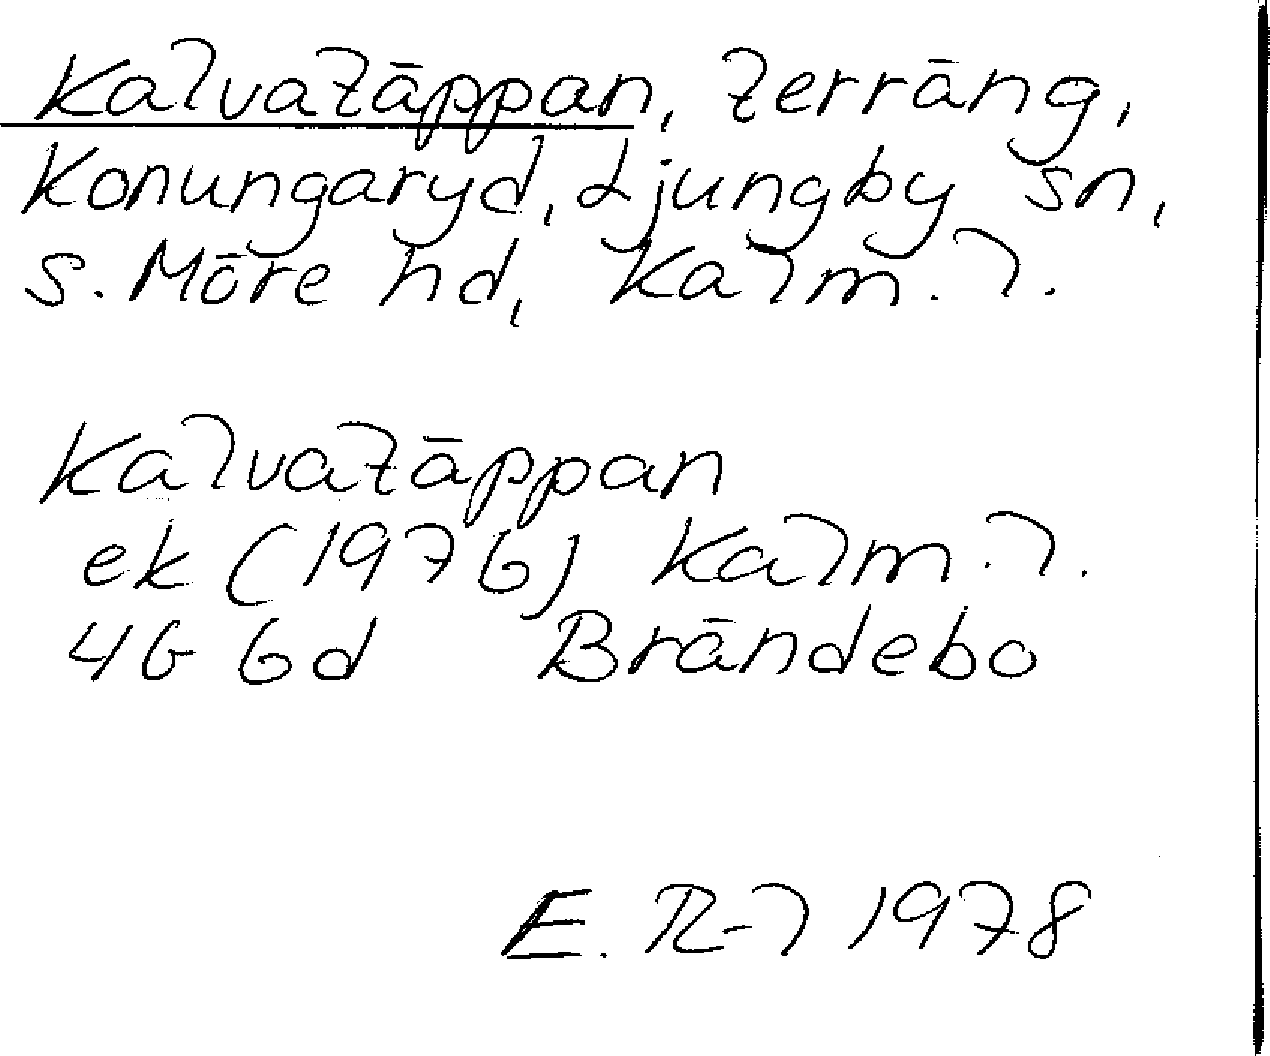 Kalvatäppan, terräng,
Konungaryd, Ljungby sn,
S. Möre hd, Kalm. l.
Kalvatäppan
ek (1976) Kalm. l.
4G 6d Brändebo
E. R-l 1978